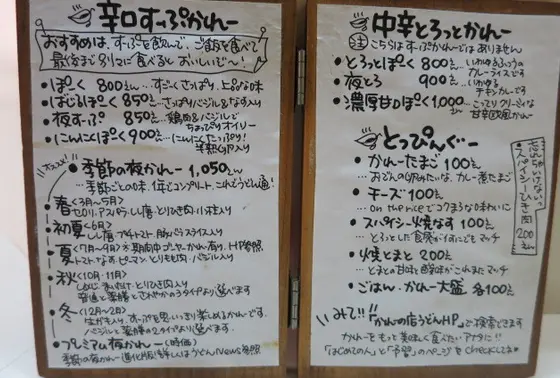 辛口すーぷかれー
おすすめは、すーぷを飲んで、ご飯を食べて
最後まで別々に食べるとおいしいで〜!
• ぽく 800えん…すごーくさっぱり、上品な味
• ばじるぽく 850えん…さっぱりバジル&なす入り
• 夜すーぷ 850えん…鶏肉&バジルで
ちょっぴりオイリー
• にんにくぽく 900えん…にんにくたっぷり!
半熟卵入り
オススメ!
• 季節の夜かれー 1,050えん
…季節ごとの味、1年でコンプリート、これでうどん通!
春<3月〜5月>
セロリ、アスパラ、しし唐、とりひき肉、小柱入り
初夏<6月>
しし唐、プチトマト、豚バラスライス入り
夏<7月〜9月>※期間中ゴーヤーかれー有り、HP参照
トマト、なす、ピーマン、とりもも肉、バジル入り
秋<10月・11月>
しめじ、まいたけ、とりひき肉入り
普通と薬膳とさわやかの3タイプより選べます
冬<12月〜2月>
生ガキ入り、すーぷを思いっきり楽しめるかれーです。
バジルと薬膳の2タイプより選べます。
• プレミアム夜かれー(時価)
季節の夜かれー進化版!詳しくはうどんNews参照
中辛とろっとかれー
注 こちらはすーぷかれーではありません
• とろっとぽく 800えん…いわゆるふつうの
カレーライスです
• 夜とろ 900えん…いわゆる
チキンカレーです
• 濃厚甘口ぽく 1,000えん…こってりクリーミィな
甘辛欧風かれー
とっぴんぐー
• かれーたまご 100えん
…おでんの卵みたいな、カレー煮たまご
• チーズ 100えん
…on the riceでコクまろな味わいに
• スパイシー焼なす 100えん
…とろっとした食感がイイ!どれにもマッチ
• 焼とまと 200えん
…とまとの甘味と酸味がこれまたマッチ
• ごはん・かれー大盛 各100えん
売切れちゃいけないっ
スパイシーひき肉 200えん
みて!!「かれーの店うどんHP」で検索できます
かれーをもっと美味しく食べたいアナタに!!
「はじめての人」と「予習」のページをcheckしてネ